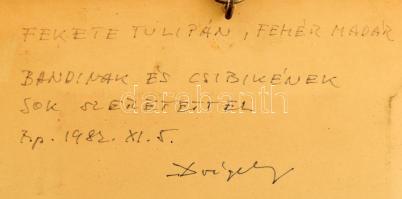 FEKETE TULIPÁN, FEHÉR MADÁR
BANDINAK ÉS CSIBIKÉNEK
SOK SZERETETTEL
Bp. 1982. XI. 5.
darabanth